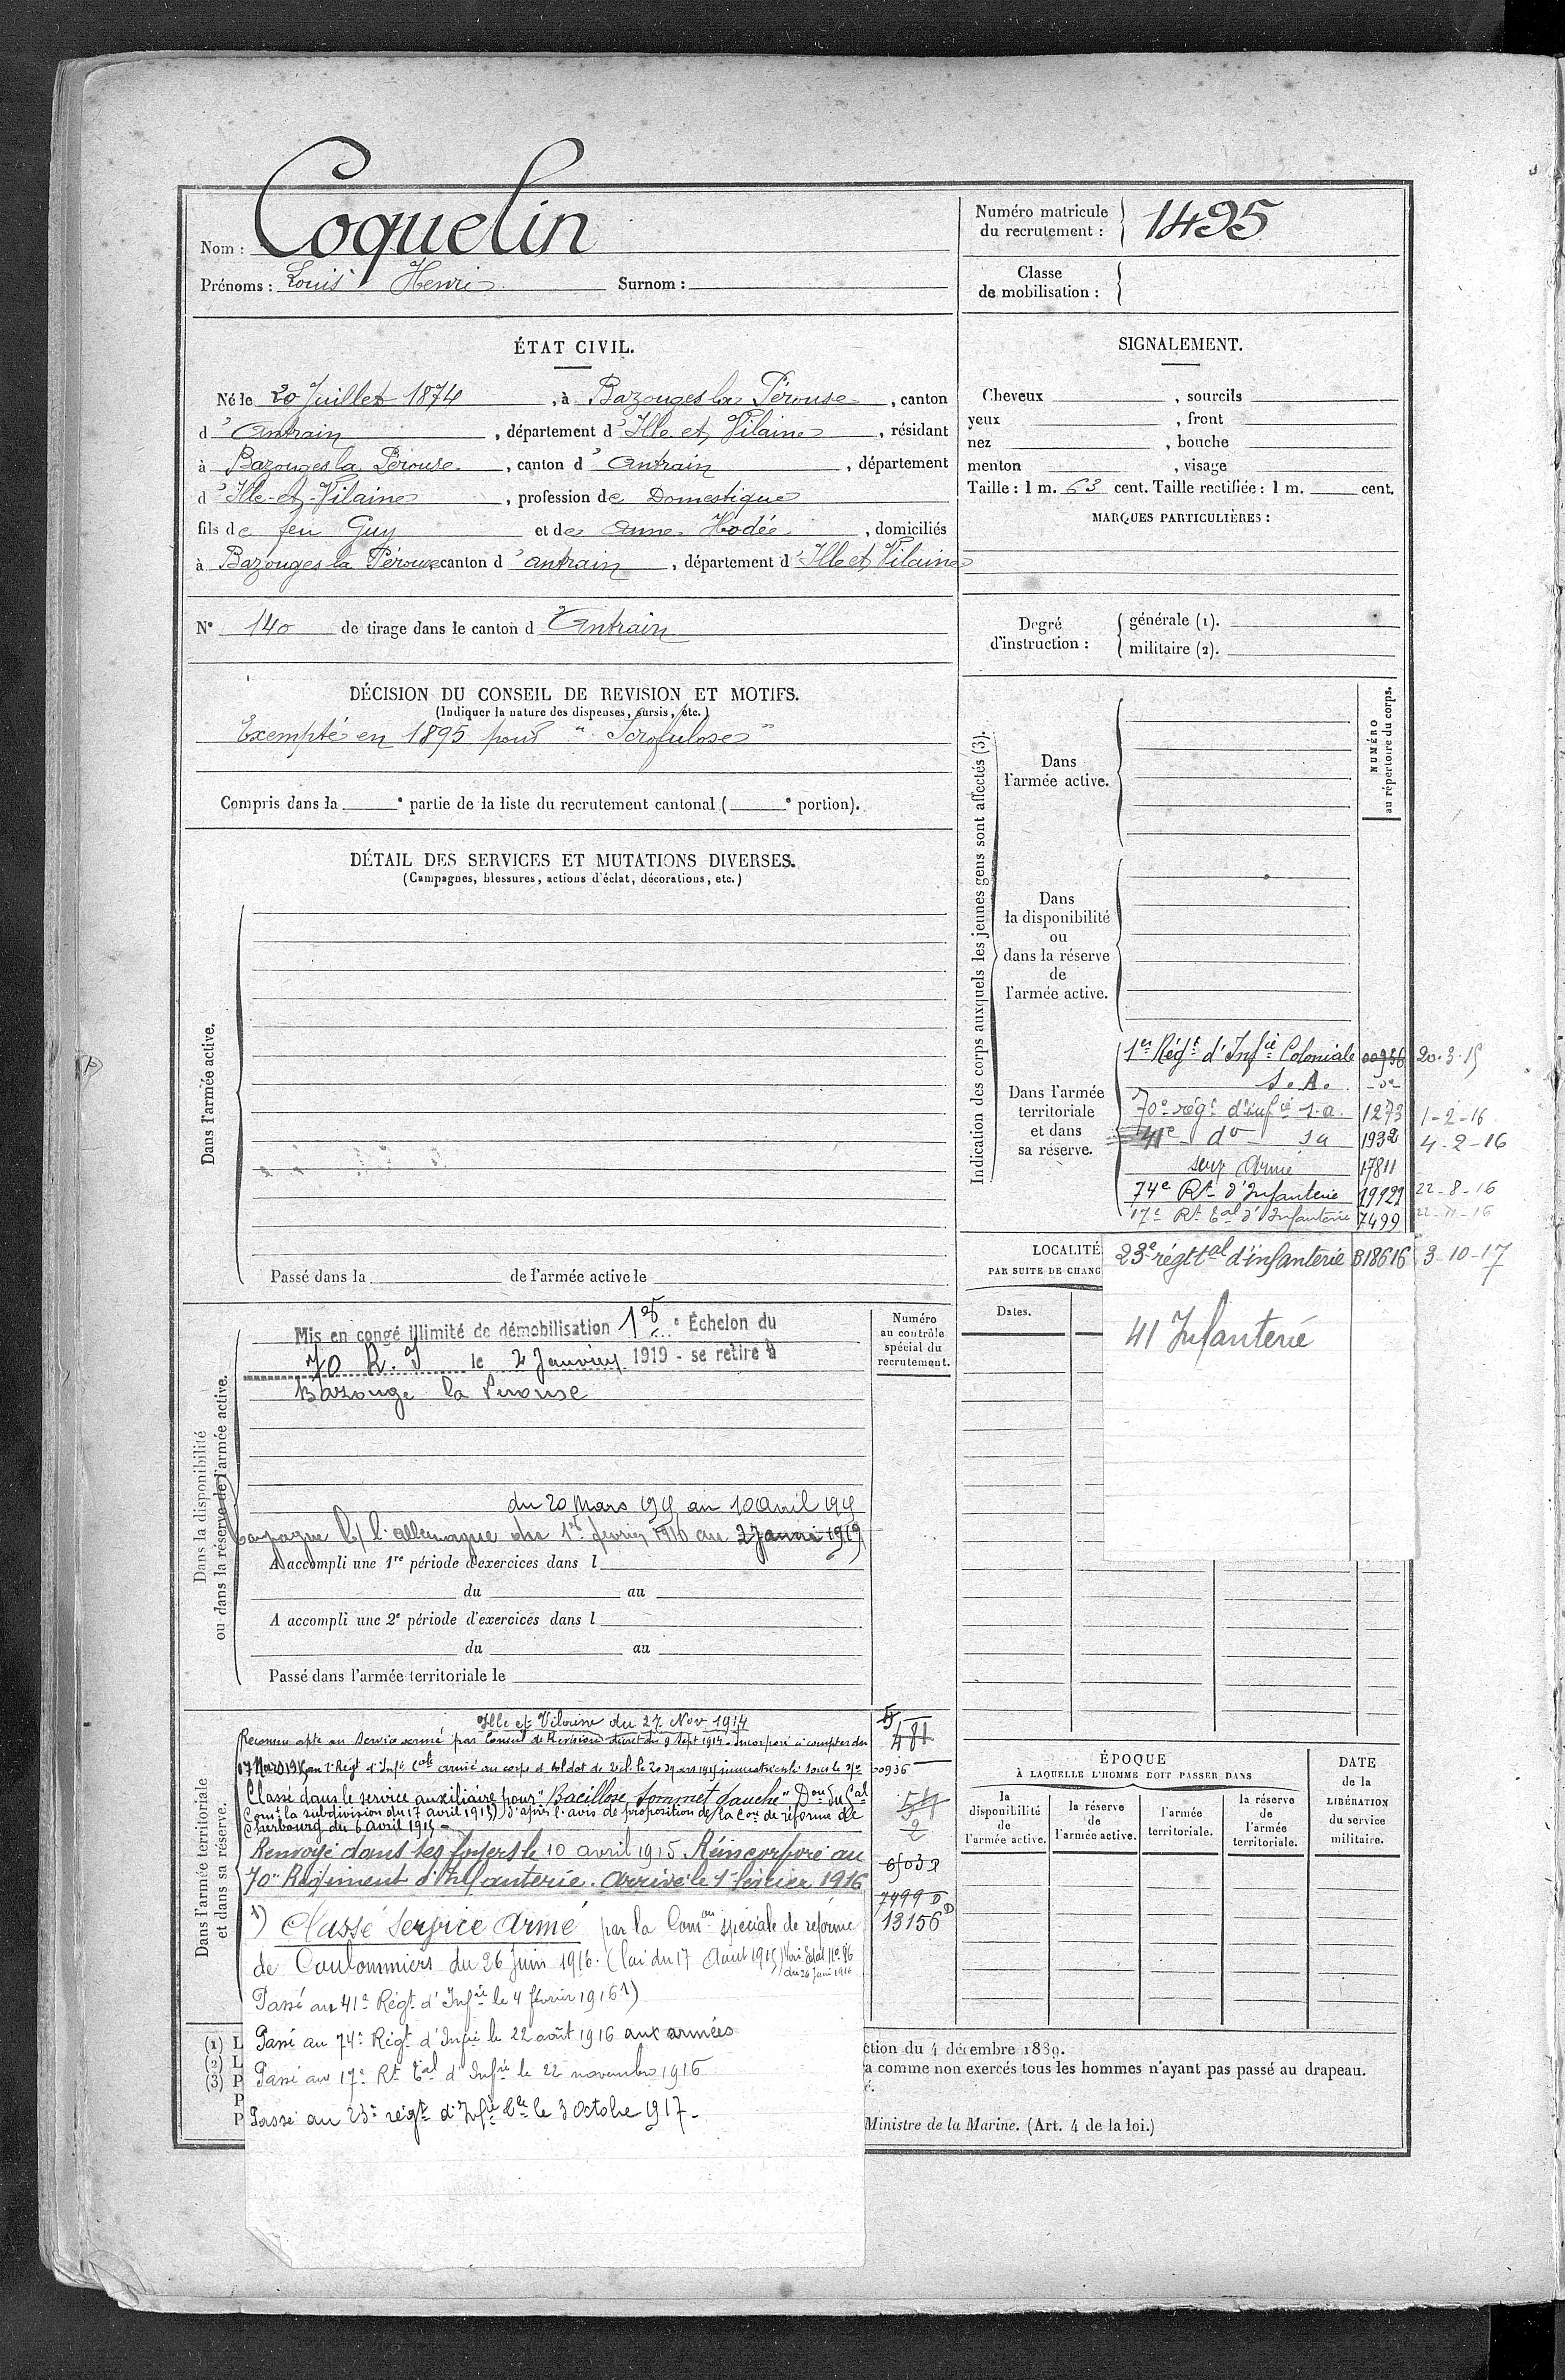 Nom : Coquelin
Prénoms : Louis Henri Surnom :
Numéro matricule
du recrutement : 1495
Classe
de mobilisation :
ÉTAT CIVIL.
Né le 20 Juillet 1874, à Bazouges la Pérouse, canton
d'Antrain, département d'Ille et Vilaine, résidant
à Bazouges la Pérouse, canton d'Antrain, département
d'Ille-et-Vilaine, profession de Domestique
fils de feu Guy et de Anne Hodée, domiciliés
à Bazouges la Pérouse canton d'antrain, département d'Ille et Vilaine
N° 140 de tirage dans le canton d'Antrain
DÉCISION DU CONSEIL DE REVISION ET MOTIFS.
(Indiquer la nature des dispenses, sursis, etc.)
Exempté en 1895 pour "Scrofulose"
Compris dans la e partie de la liste du recrutement cantonal ( e portion).
DÉTAIL DES SERVICES ET MUTATIONS DIVERSES.
(Campagnes, blessures, actions d'éclat, décorations, etc.)
Dans l'armée active.
Passé dans la de l'armée active le
Dans la disponibilité
ou dans la réserve de l'armée active.
Mis en congé illimité de démobilisation 1er Échelon du
70 R. I le 2 Janvier 1919 - se retire à
Bazouge la Perouse
Numéro
au contrôle
spécial du
recrutement.
du 20 Mars 1915 au 10 Avril 1915
Campagne c/ l'allemagne du 1er février 1916 au 2 janvi 1919
A accompli une 1re période d'exercices dans l
du au
A accompli une 2e période d'exercices dans l
du au
Passé dans l'armée territoriale le
Dans l'armée territoriale
et dans sa réserve.
Ille et Vilaine du 27 Nov 1914
Reconnu apte au service armé par Conseil de Révision décret du 9 Sept 1914. Incorporé à compter du
17 Mars 1915 au 1er Régt d'Infie Cole arrivé au corps et soldat de 2e cl. le 20 Mars 1915 immatriculé sous le No 00936
Classé dans le service auxiliaire pour "Bacillose sommet gauche" Don du Gal
Comt la subdivision du 17 avril 1915) d'après l'avis de proposition de la Con de réforme de
Cherbourg du 6 avril 1915 -
Renvoyé dans ses foyers le 10 avril 1915. Réincorporé au
70e Régiment d'Infanterie. Arrivé le 1er février 1916
1) Classé Service Armé par la Comon spéciale de réforme
de Coulommiers du 26 Juin 1916. (loi du 17 Août 1915) Voir Etat No 86
du 26 Juin 1916
Passé au 41e Régt d'Infie le 4 février 1916 1)
Passé au 74e Régt d'Infie le 22 août 1916 aux armées
Passé au 17e Rt Tal d'Infie le 22 novembre 1916
Passé au 23e régt d'Infie Tle le 3 Octobre 1917.
481
7499
13156
(1) L
(2) L
(3) P
P
P
ction du 4 décembre 1889.
a comme non exercés tous les hommes n'ayant pas passé au drapeau.
é.
Ministre de la Marine. (Art. 4 de la loi.)
SIGNALEMENT.
Cheveux , sourcils
yeux , front
nez , bouche
menton , visage
Taille : 1 m. 63 cent. Taille rectifiée : 1 m. cent.
MARQUES PARTICULIÈRES :
Degré
d'instruction :
générale (1).
militaire (2).
Indication des corps auxquels les jeunes gens sont affectés (3).
NUMÉRO
au répertoire du corps.
Dans
l'armée active.
Dans
la disponibilité
ou
dans la réserve
de
l'armée active.
Dans l'armée
territoriale
et dans
sa réserve.
1er Régt d'Infie Coloniale 00936 20.3.15
S.A. - do -
70e régt d'infie s.a. 1273 1-2-16
41e do s a 1932 4-2-16
serv Armé 17811
74e Rt d'Infanterie 19929 22-8-16
17e Rt Tal d'Infanterie 7499 22-11-16
23e régt tal d'infanterie B18616 3-10-17
41 Infanterie
LOCALITÉ
PAR SUITE DE CHANG
Dates.
ÉPOQUE
À LAQUELLE L'HOMME DOIT PASSER DANS
la
disponibilité
de
l'armée active.
la réserve
de
l'armée active.
l'armée
territoriale.
la réserve
de
l'armée
territoriale.
DATE
de la
LIBÉRATION
du service
militaire.